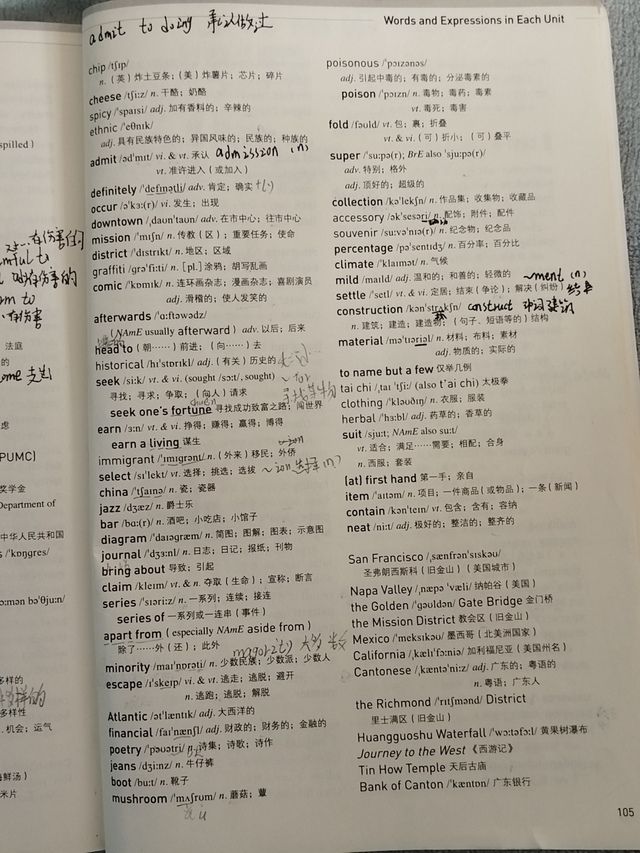 spilled)
法庭
虑
PUMC)
奖学金
Department of
中华人民共和国
s /'kɒŋgres/
多样的
多样性
.机会；运气
海鲜汤)
米片
admit to doing 承认做过
Words and Expressions in Each Unit
chip /tʃɪp/
n.（英）炸土豆条；（美）炸薯片；芯片；碎片
cheese /tʃiːz/ n. 干酪；奶酪
spicy /'spaɪsi/ adj. 加有香料的；辛辣的
ethnic /'eθnɪk/
adj. 具有民族特色的；异国风味的；民族的；种族的
admit /əd'mɪt/ vi. & vt. 承认 admission (n)
vt. 准许进入（或加入）
definitely /'defɪnətli/ adv. 肯定；确实
occur /ə'kɜː(r)/ vi. 发生；出现
downtown /ˌdaʊn'taʊn/ adv. 在市中心；往市中心
mission /'mɪʃn/ n. 传教（区）；重要任务；使命
district /'dɪstrɪkt/ n. 地区；区域
graffiti /grə'fiːti/ n. [pl.] 涂鸦；胡写乱画
comic /'kɒmɪk/ n. 连环画杂志；漫画杂志；喜剧演员
adj. 滑稽的；使人发笑的
afterwards /'ɑːftəwədz/
(NAmE usually afterward) adv. 以后；后来
head to（朝……）前进；（向……）去
historical /hɪ'stɒrɪkl/ adj.（有关）历史的
seek /siːk/ vt. & vi. (sought /sɔːt/, sought)
寻找；寻求；争取；（向人）请求
seek one's fortune 寻找成功致富之路；闯世界
earn /ɜːn/ vt. & vi. 挣得；赚得；赢得；博得
earn a living 谋生
immigrant /'ɪmɪgrənt/ n.（外来）移民；外侨
select /sɪ'lekt/ vt. 选择；挑选；选拔
china /'tʃaɪnə/ n. 瓷；瓷器
jazz /dʒæz/ n. 爵士乐
bar /bɑː(r)/ n. 酒吧；小吃店；小馆子
diagram /'daɪəgræm/ n. 简图；图解；图表；示意图
journal /'dʒɜːnl/ n. 日志；日记；报纸；刊物
bring about 导致；引起
claim /kleɪm/ vt. & n. 夺取（生命）；宣称；断言
series /'sɪəriːz/ n. 一系列；连续；接连
series of 一系列或一连串（事件）
apart from (especially NAmE aside from)
除了……外（还）；此外
minority /maɪ'nɒrəti/ n. 少数民族；少数派；少数人
escape /ɪ'skeɪp/ vi. & vt. 逃走；逃脱；避开
n. 逃跑；逃脱；解脱
Atlantic /ət'læntɪk/ adj. 大西洋的
financial /faɪ'nænʃl/ adj. 财政的；财务的；金融的
poetry /'pəʊətri/ n. 诗集；诗歌；诗作
jeans /dʒiːnz/ n. 牛仔裤
boot /buːt/ n. 靴子
mushroom /'mʌʃrʊm/ n. 蘑菇；蕈
poisonous /'pɔɪzənəs/
adj. 引起中毒的；有毒的；分泌毒素的
poison /'pɔɪzn/ n. 毒物；毒药；毒素
vt. 毒死；毒害
fold /fəʊld/ vt. 包；裹；折叠
vt. & vi.（可）折小；（可）叠平
super /'suːpə(r); BrE also 'sjuːpə(r)/
adv. 特别；格外
adj. 顶好的；超级的
collection /kə'lekʃn/ n. 作品集；收集物；收藏品
accessory /ək'sesəri/ n. 配饰；附件；配件
souvenir /ˌsuːvə'nɪə(r)/ n. 纪念物；纪念品
percentage /pə'sentɪdʒ/ n. 百分率；百分比
climate /'klaɪmət/ n. 气候
mild /maɪld/ adj. 温和的；和善的；轻微的 ~ment (n)
settle /'setl/ vt. & vi. 定居；结束（争论）；解决（纠纷）
construction /kən'strʌkʃn/ construct
n. 建筑；建造；建造物；（句子、短语等的）结构
material /mə'tɪəriəl/ n. 材料；布料；素材
adj. 物质的；实际的
to name but a few 仅举几例
tai chi /ˌtaɪ 'tʃiː/ (also t'ai chi) 太极拳
clothing /'kləʊðɪŋ/ n. 衣服；服装
herbal /'hɜːbl/ adj. 药草的；香草的
suit /sjuːt; NAmE also suːt/
vt. 适合；满足……需要；相配；合身
n. 西服；套装
(at) first hand 第一手；亲自
item /'aɪtəm/ n. 项目；一件商品（或物品）；一条（新闻）
contain /kən'teɪn/ vt. 包含；含有；容纳
neat /niːt/ adj. 极好的；整洁的；整齐的
San Francisco /ˌsænfrən'sɪskəʊ/
圣弗朗西斯科（旧金山）（美国城市）
Napa Valley /ˌnæpə 'væli/ 纳帕谷（美国）
the Golden /'gəʊldən/ Gate Bridge 金门桥
the Mission District 教会区（旧金山）
Mexico /'meksɪkəʊ/ 墨西哥（北美洲国家）
California /ˌkælɪ'fɔːniə/ 加利福尼亚（美国州名）
Cantonese /ˌkæntə'niːz/ adj. 广东的；粤语的
n. 粤语；广东人
the Richmond /'rɪtʃmənd/ District
里士满区（旧金山）
Huangguoshu Waterfall /'wɔːtəfɔːl/ 黄果树瀑布
Journey to the West 《西游记》
Tin How Temple 天后古庙
Bank of Canton /'kæntɒn/ 广东银行
105